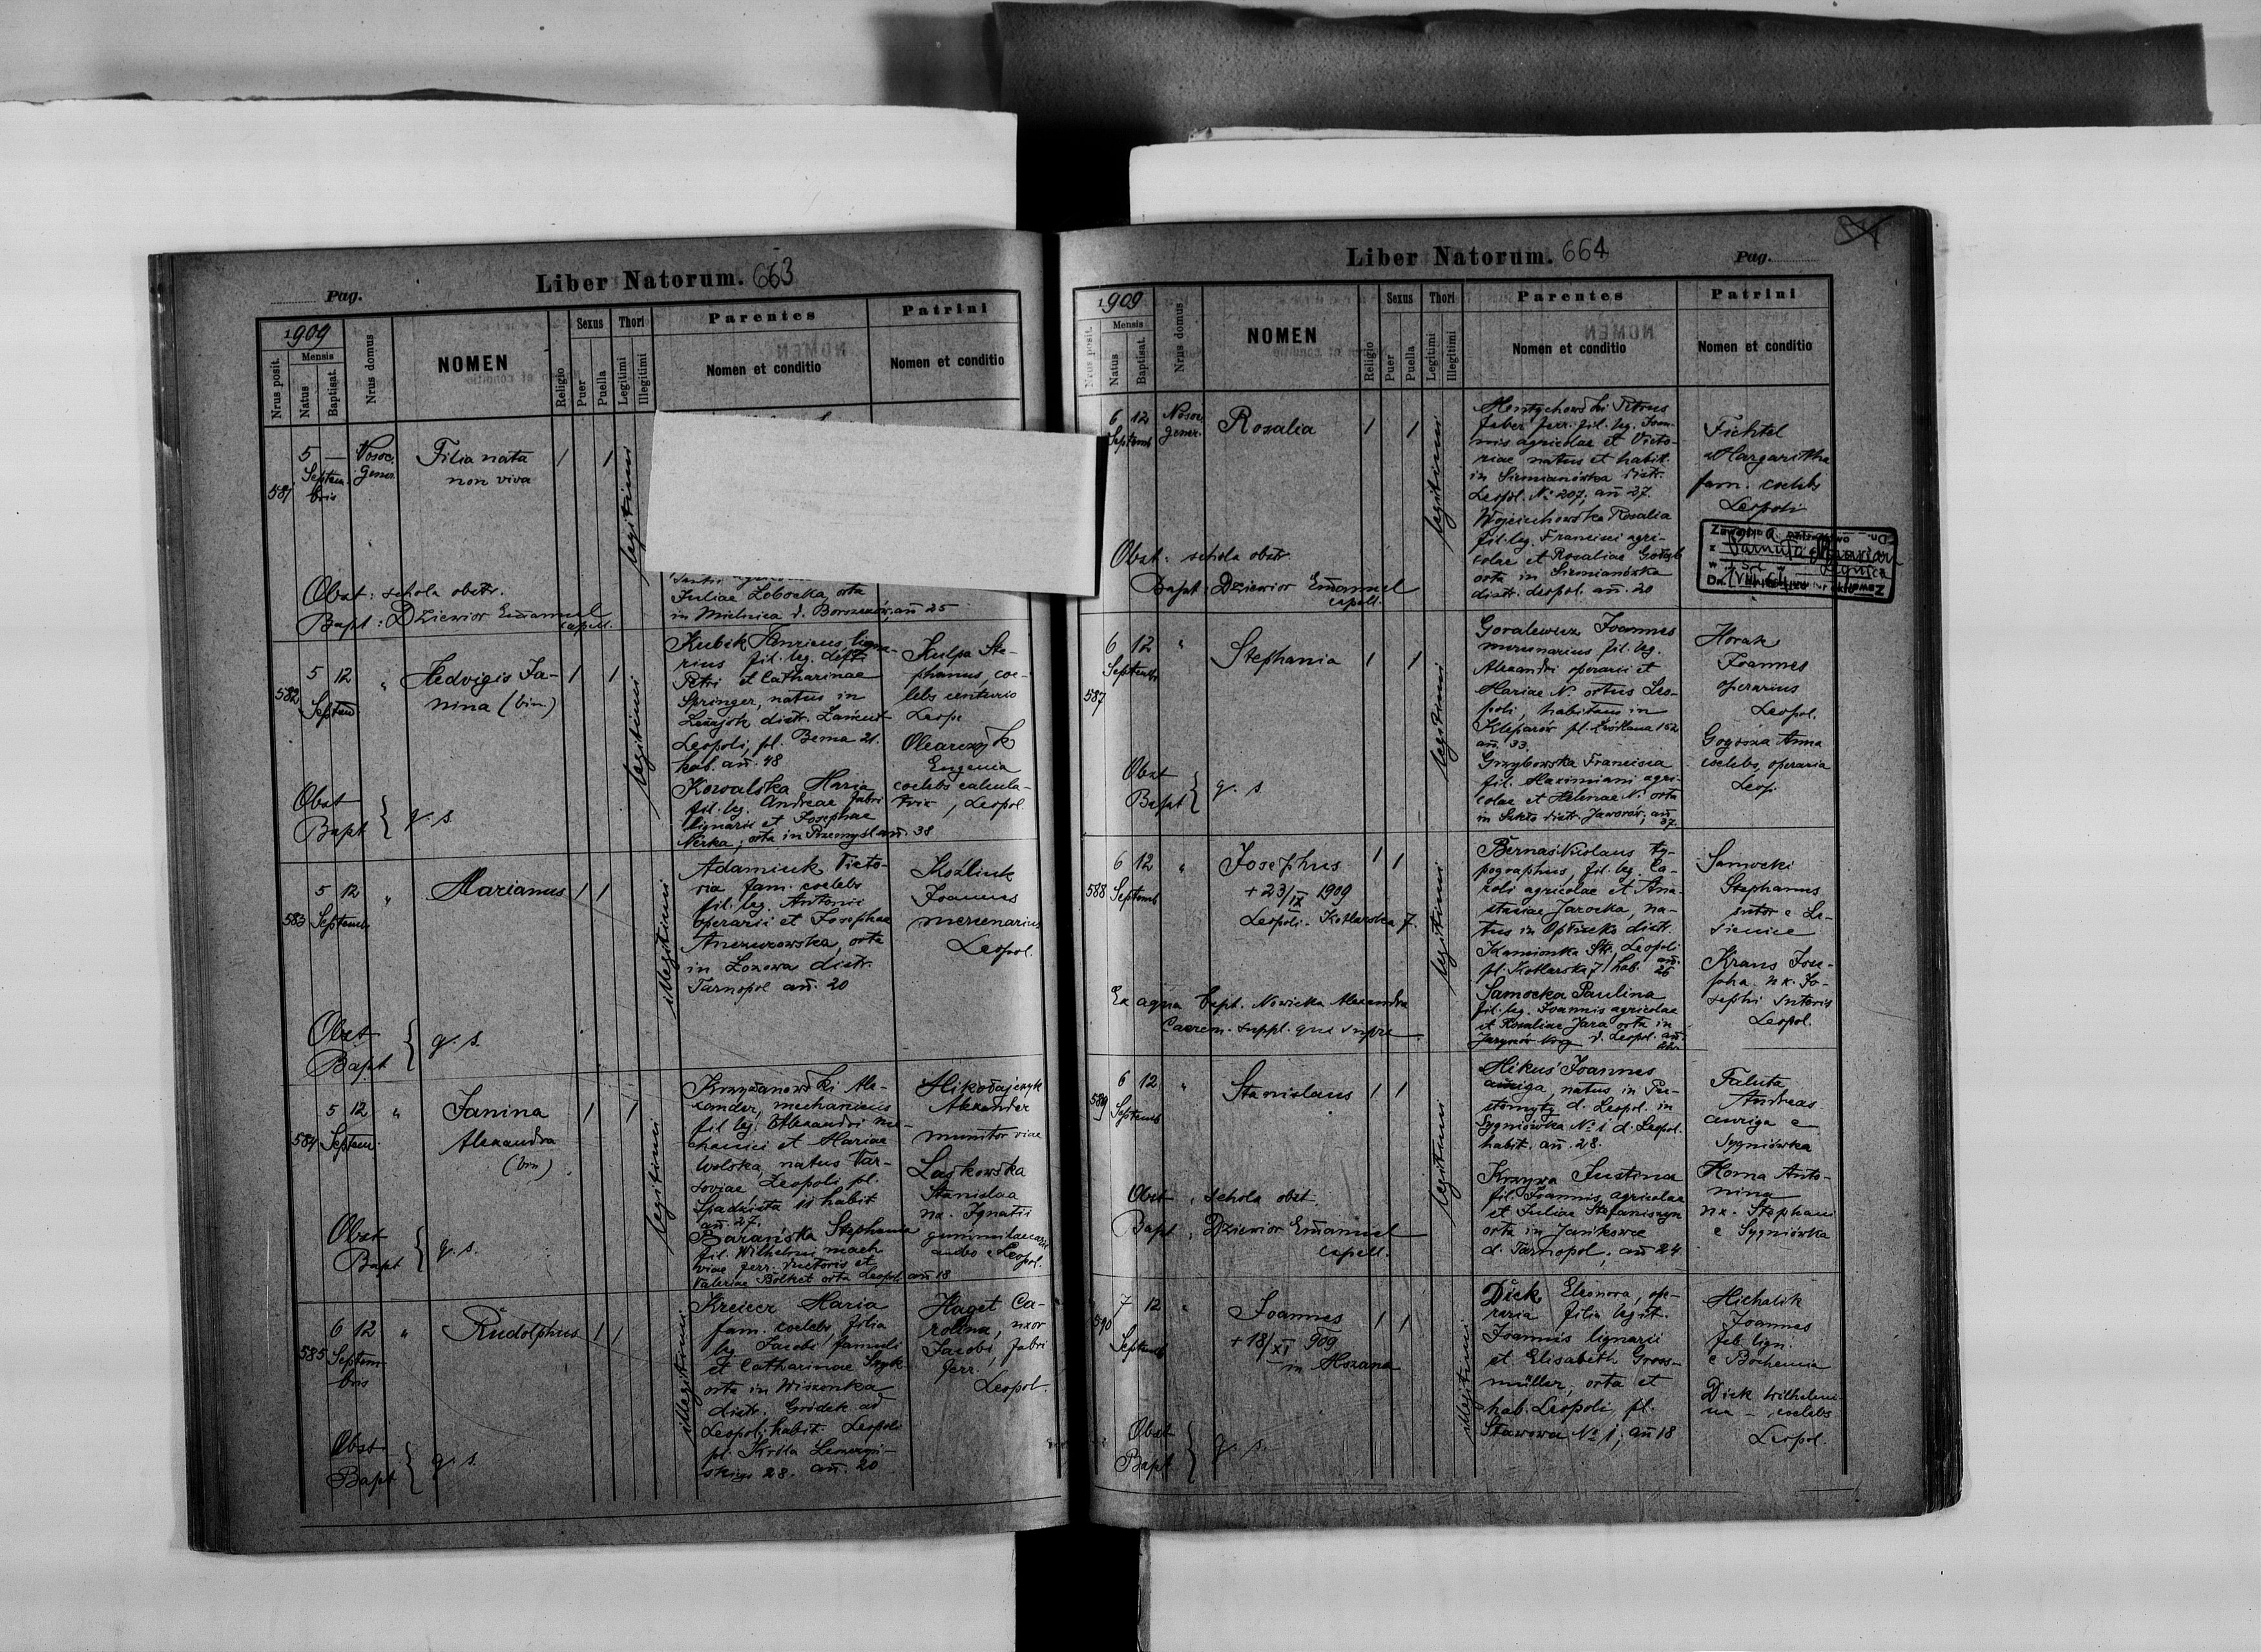 Pag.
Liber Natorum. 663
1909
Nrus posit.
Mensis
Natus
Baptisat.
Nrus domus
NOMEN
Religio
Sexus
Puer
Puella
Thori
Legitimi
Illegitimi
Parentes
Nomen et conditio
Patrini
Nomen et conditio
581
5 —
Septem-
bris
Nosoc.
gener.
Filia nata
non viva
1 1
legitimi
Juliae Lobocka, orta
in Mielnica d. Borszczów, añ 25
Obst: schola obstr.
Bapt: Dziewior Emanuel
capell.
582
5 12
Septem
"
Hedvigis Ja-
nina (bin.)
1 1
legitimi
Kubik Henricus ligna-
rius fil. leg. defti
Petri et Catharinae
Springer, natus in
Leżajsk distr. Łańcut
Leopoli, pl. Bema 21.
hab. añ. 48
Kowalska Maria
fil. leg. Andreae fabri
lignarii et Josephae
Nerka, orta in Przemyśl añ. 38
Kulpa Ste-
phanus, coe-
lebs centurio
Leop.
Olearczyk
Eugenia
coelebs calcula-
trix, Leopol.
Obst
Bapt } q. s.
583
5 12
Septemb
"
Marianus
1 1
illegitimi
Adamiuk Victo-
ria fam. coelebs
fil. leg. Antonii
operarii et Josephae
orta
in Łozowa distr.
Tarnopol añ. 20
Koźliuk
Joannes
mercenarius
Leopol.
Obst
Bapt } q. s.
584
5 12
Septem.
"
Janina
Alexandra
(bin)
1 1
legitimi
Krzyżanowski Ale-
xander, mechanicus
fil leg. Alexandri me-
chanici et Mariae
Wolska, natus Var-
soviae Leopoli pl.
Spadzista 11 habit
añ. 27.
Barańska Stephania
fil. Wilhelmi mach
viae ferr. ductoris et
Valeriae Bölket orta Leopol. añ 18
Mikołajczyk
Alexander
munitor viae
Laskowska
Stanislaa
ux. Ignatii
e Leopol.
Obst
Bapt } q. s.
585
6 12
Septem-
bris
"
Rudolphus
1 1
illegitimi
Kreicer Maria
fam. coelebs, filia
leg Jacobi famuli
et Catharinae
orta in Wiszenka
distr. Gródek ad
Leopoli habit. Leopoli
pl. Króla Leszczyń-
skiego 28. añ. 20
Haget Ca-
rolina, uxor
Jacobi, fabri
ferr.
Leopol.
Obst
Bapt } q. s.
Liber Natorum. 664
Pag.
1909
Nrus posit.
Mensis
Natus
Baptisat.
Nrus domus
NOMEN
Religio
Sexus
Puer
Puella
Thori
Legitimi
Illegitimi
Parentes
Nomen et conditio
Patrini
Nomen et conditio
6 12
Septemb
Nosoc.
gener.
Rosalia
1 1
legitimi
Petrus
faber ferr. fil. leg. Joan-
nis agricolae et Victo-
riae natus et habit.
in Siemianówka distr.
Leopol. № 207; añ 27.
Wojciechowska Rosalia
fil. leg. Francisci agri-
colae et Rosaliae
orta in Siemianówka
distr. Leopol. añ. 20
Fichtel
Margaritha
fam. coelebs
Leopoli
Obst: schola obstr.
Bapt: Dziewior Emanuel
capell.
587
6 12
Septemb
"
Stephania
1 1
legitimi
Goralewicz Joannes
mercenarius fil. leg.
Alexandri operarii et
Mariae N. ortus Leo-
poli, habitans in
Kleparów pl. 152
añ. 33.
Grzybowska Francisca
fil. Maximiani agri-
colae et Helenae N. orta
in Szkło distr. Jaworów, añ
37.
Horak
Joannes
operarius
Leopol.
Gogosza Anna
coelebs, operaria
Leop.
Obst
Bapt } q. s.
588
6 12
Septemb
"
Josephus
+ 23/IX 1909
Leopoli. Kotlarska 7.
1 1
legitimi
Bernas Nicolaus ty-
pographus, fil. leg. Ca-
roli agricolae et Ana-
stasiae Jarocka, na-
tus in distr.
Kamionka Str. Leopoli
pl. Kotlarska 7 hab. añ.
26
Samocka Paulina
fil. leg. Joannis agricolae
et Rosaliae Jara orta in
d. Leopol. añ.
Samocki
Stephanus
sutor e Le-
sienice
Kraus Jose-
pha. ux. Jo-
sephi sutoris
Leopol.
Ex aqua bapt. Nowicka Alexandra
Caerem. suppl. qui supra
589
6 12
Septemb
"
Stanislaus
1 1
legitimi
Mikuś Joannes
auriga, natus in Pu-
stomyty d. Leopol. in
Sygniówka № 1 d. Leopol.
habit. añ. 28.
Krzywa Justina
fil. Joannis agricolae
et Juliae Stefaniszyn
orta in Jankowce
d. Tarnopol, añ 24
Faluta
Andreas
auriga e
Sygniówka
Homa Anto-
nina
ux. Stephani
e Sygniówka
Obst: schola obst
Bapt: Dziewior Emanuel
capell.
590
7 12
Septemb
"
Joannes
+ 18/XI 909
in Mszana
1 1
illegitimi
Dick Eleonora, ope-
raria filia legit.
Joannis lignarii
et Elisabeth Gross-
müller, orta et
hab. Leopoli, pl.
Stawowa № 1, añ 18
Michalik
Joannes
fab. lign.
e Bochemia
Dick Wilhelmi-
na — coelebs
Leopol.
Obst
Bapt } q. s.